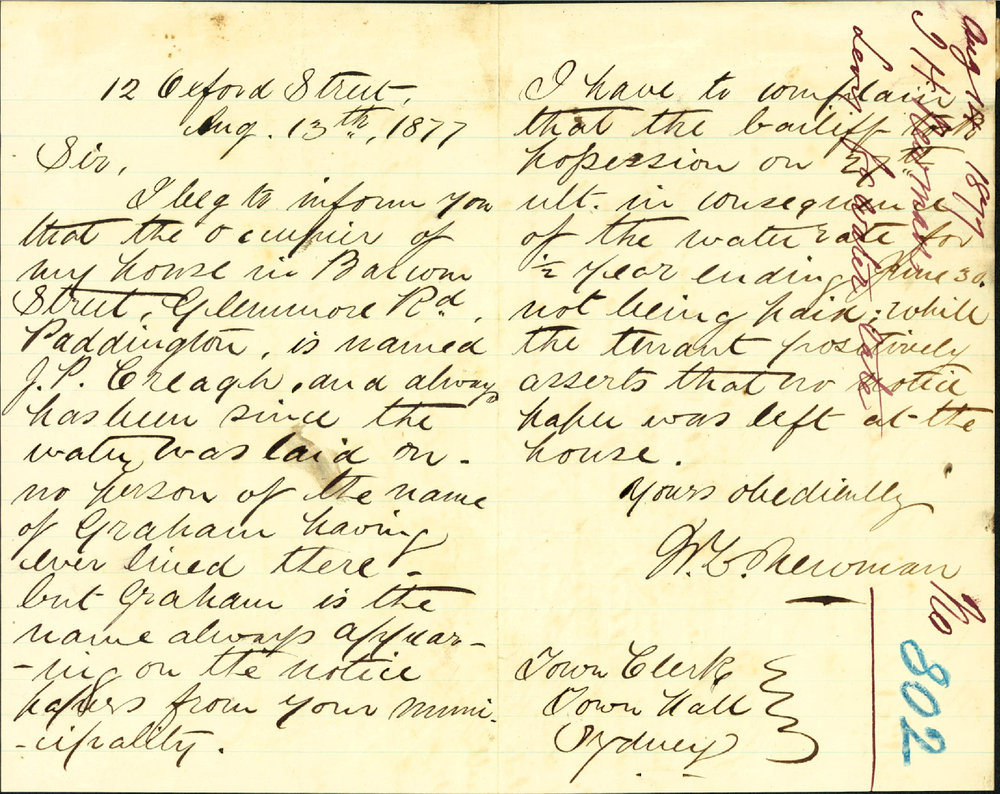 12 Oxford Street,
Aug. 13th, 1877
Sir,
I beg to inform you
that the occupier of
my house in Bascom
Street, Glenmore Rd,
Paddington, is named
J. P. Creagh, and always
has been since the
water was laid on -
no person of the name
of Graham having
ever lived there -
but Graham is the
name always appear-
-ing on the notice
papers from your muni-
-cipality.
I have to complain
that the bailiff took
possession on
ult. in consequence
of the water rate for
½ year ending June 30.
not being paid; while
the tenant positively
asserts that no notice
paper was left at the
house.
Yours obediently
W. L. Newman
Town Clerk
Town Hall
Sydney
Aug 14 1877
Newman
Levy for water rate
No
802